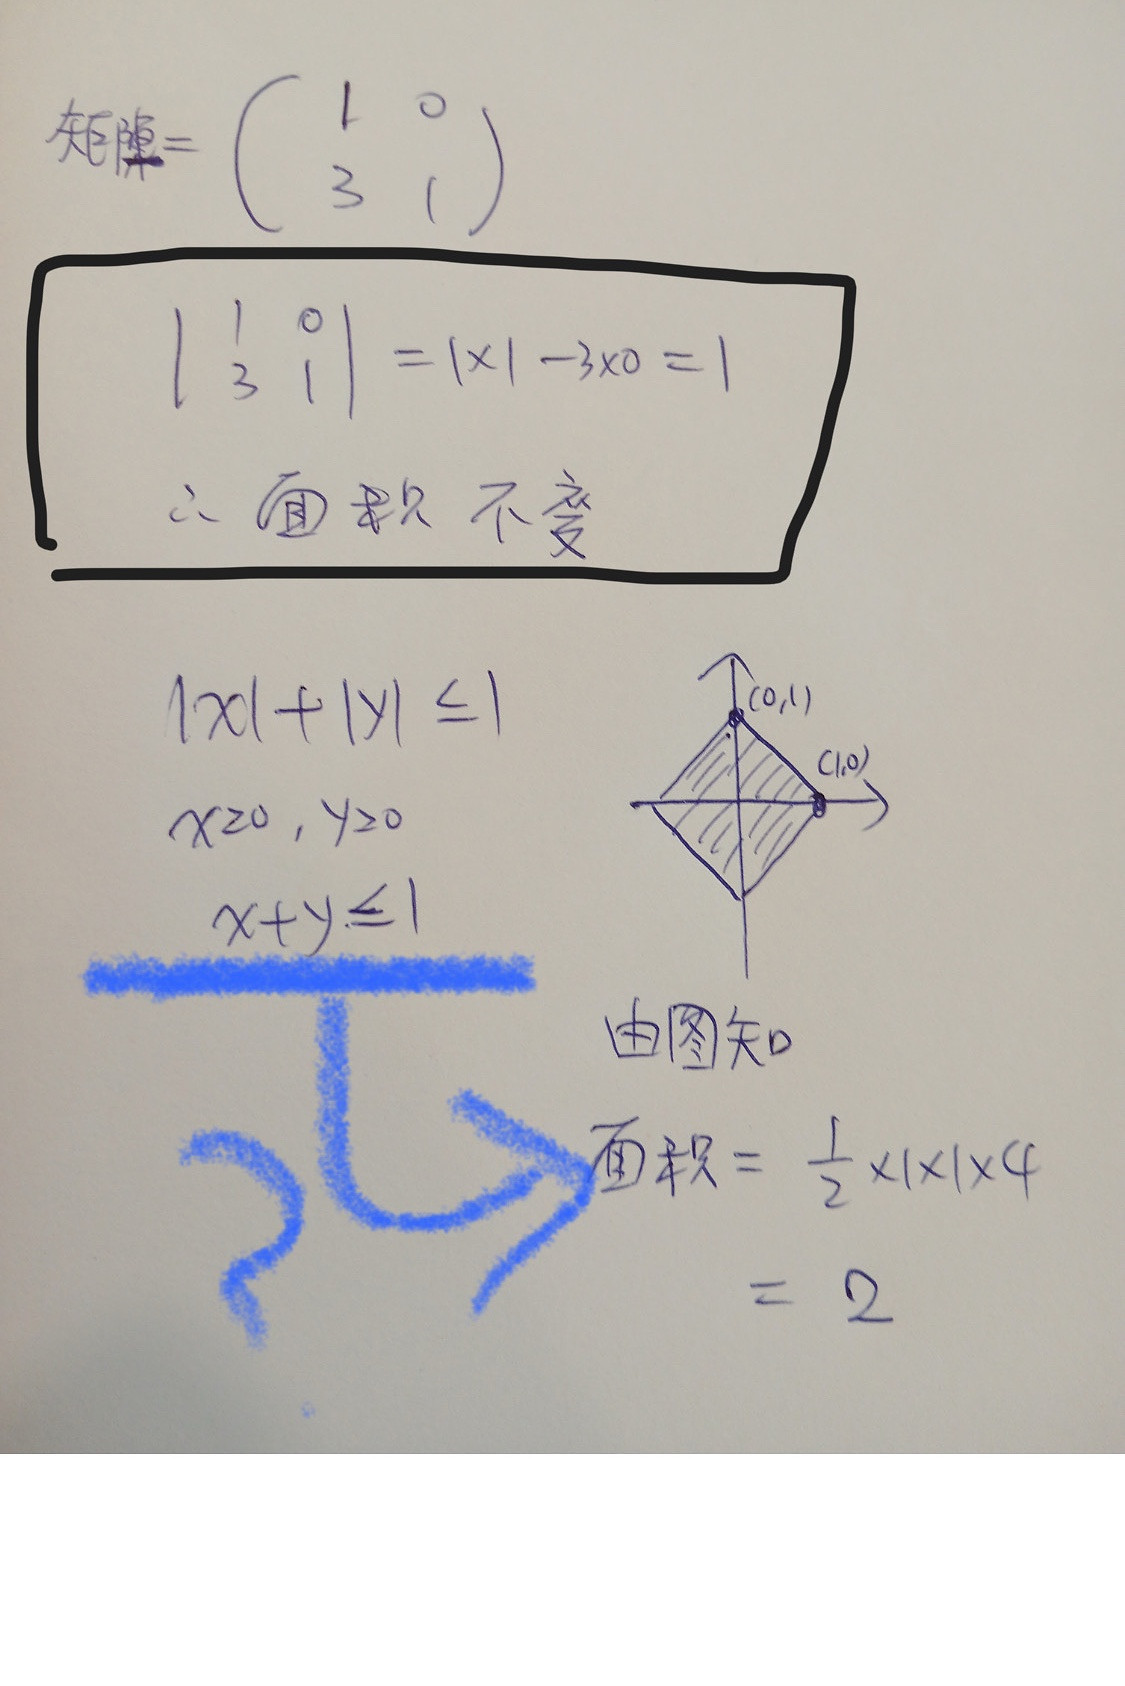 矩阵= ( 1 0
3 1 )
| 1 0
3 1 | = 1×1 -3×0 = 1
∴ 面积不变
|x|+|y| ≤1
(0,1)
(1,0)
x≥0 , y≥0
x+y≤1
由图知
面积 = 1/2 ×1×1×4
= 2
?